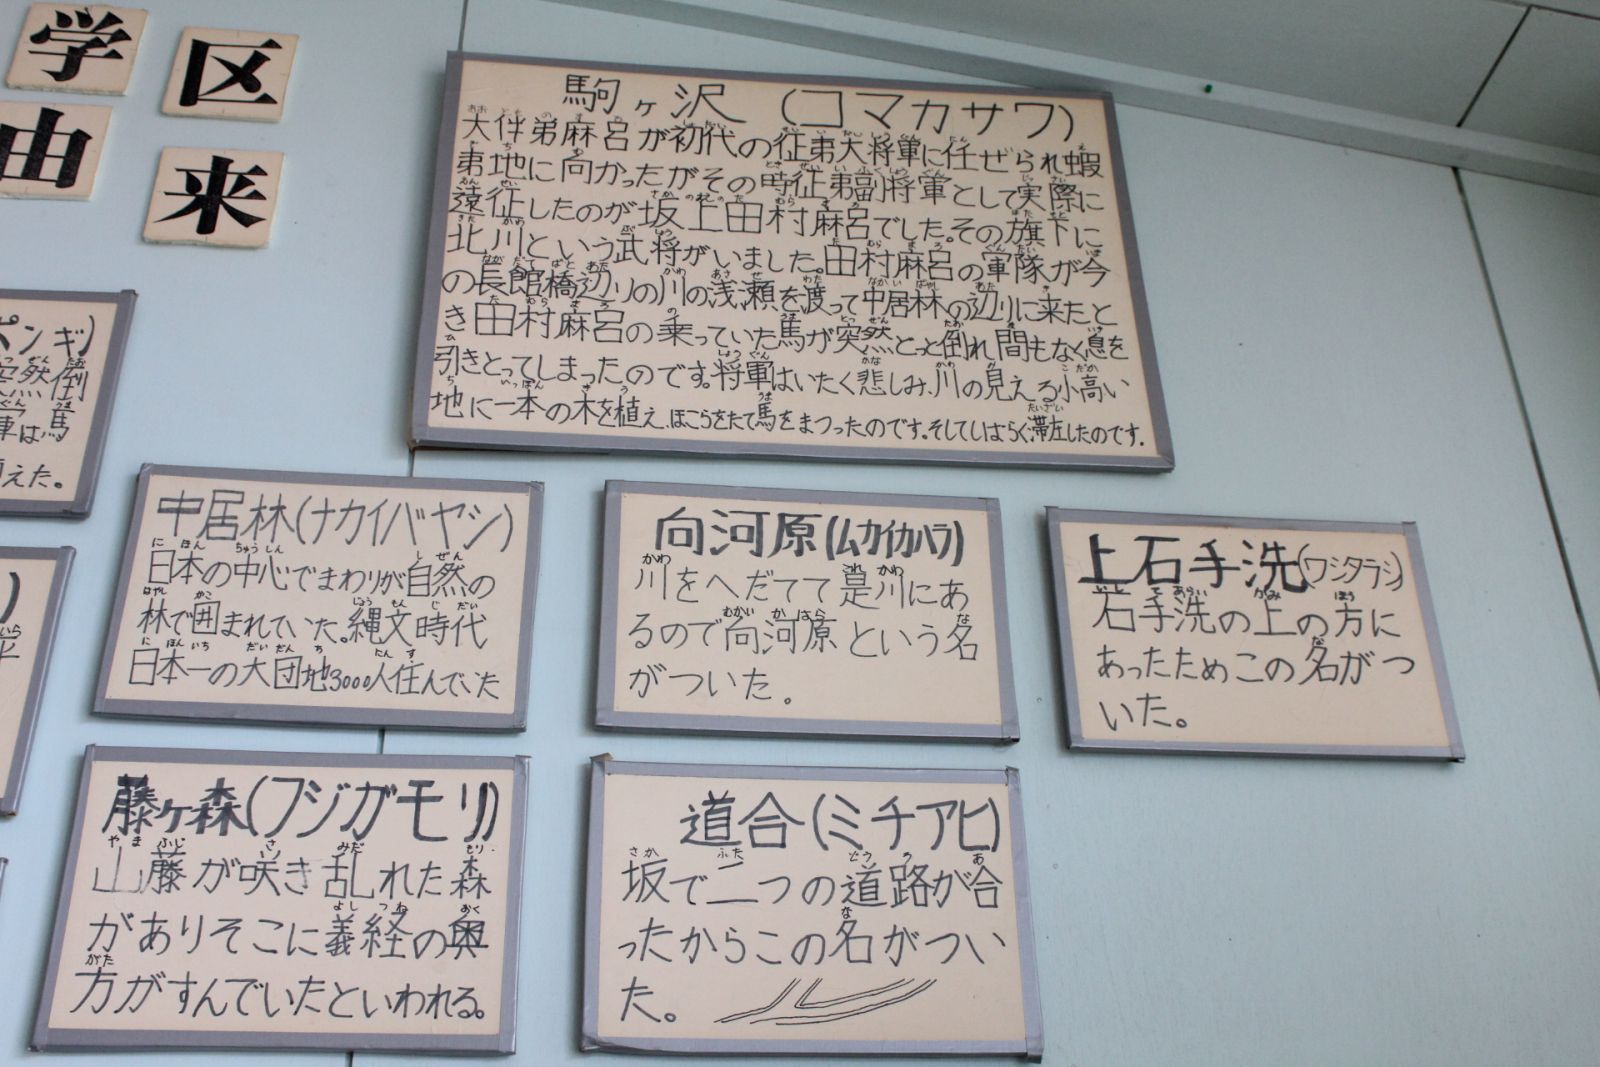 学区
由来
駒ヶ沢(コマカサワ)
大伴弟麻呂が初代の征弟大将軍に任ぜられ蝦
弟地に向かったがその時征弟副将軍として実際に
遠征したのが坂上田村麻呂でした。その旗下に
北川という武将がいました。田村麻呂の軍隊が今
の長館橋辺りの川の浅瀬を渡って中居林の辺りに来たと
き田村麻呂の乗っていた馬が突然とっと倒れ間もなく息を
引きとってしまったのです。将軍はいたく悲しみ、川の見える小高い
地に一本の木を植え、ほこらをたて馬をまつったのです。そしてしばらく滞在したのです。
ペンギ)
突然倒
軍は馬
えた。
中居林(ナカイバヤシ)
日本の中心でまわりが自然の
林で囲まれていた。縄文時代
日本一の大団地3000人住んでいた
向河原(ムカイカハラ)
川をへだてて是川にあ
るので向河原という名
がついた。
上石手洗(ワシタラシ)
岩手洗の上の方に
あったためこの名がつ
いた。
藤ヶ森(フジガモリ)
山藤が咲き乱れた森
がありそこに義経の奥
方がすんでいたといわれる。
道合(ミチアヒ)
坂で二つの道路が合
ったからこの名がつい
た。